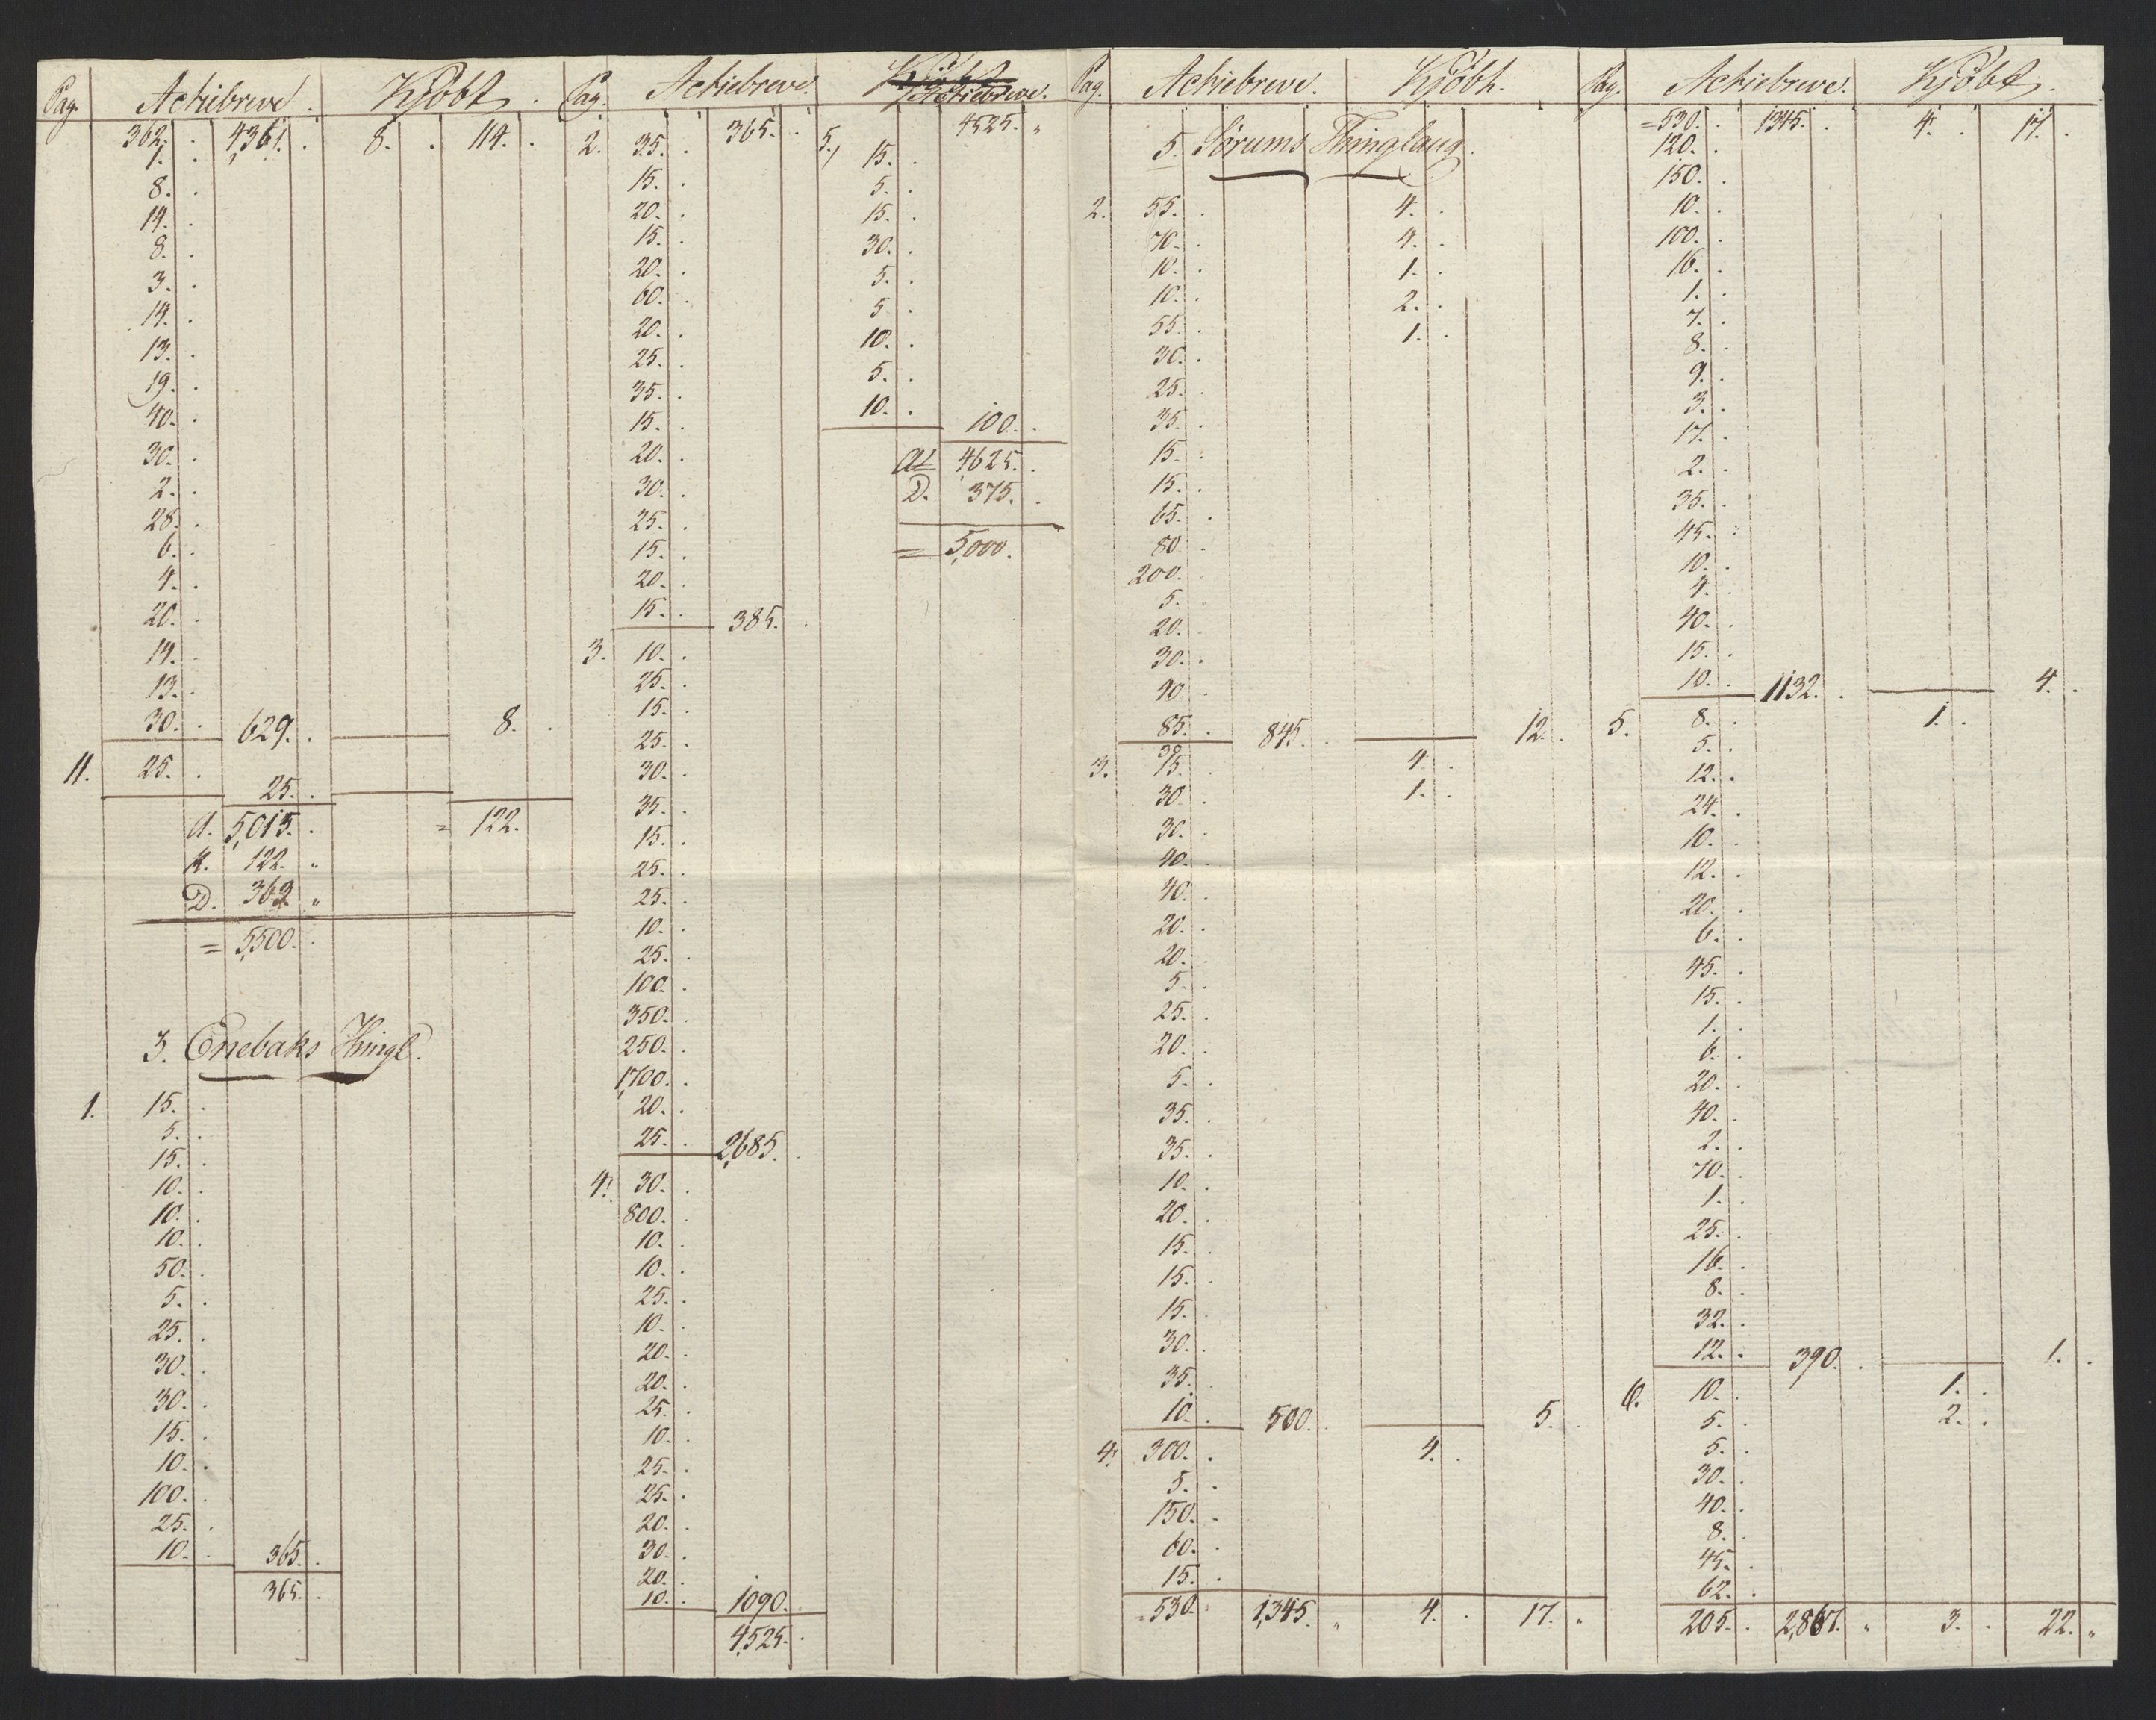 Pag. Actiebreve. Kjöbt.
362. 4,361. 8. 114.
1.
8.
14.
8.
3.
14.
13.
19.
40.
30.
2.
28.
6.
4.
20.
14.
13.
30. 629. 8.
11. 25.
25.
A. 5,015. = 122.
K. 122. "
D. 363 "
= 5,500.
3. Enebaks Thingl.
1. 15.
5.
15.
10.
10.
10.
50.
5.
25.
30.
30.
15.
10.
100.
25.
10. 365.
365.
Pag. Actiebreve.
2. 35. 365.
15.
20.
15.
20.
60.
20.
25.
35.
15.
20.
30.
25.
15.
20.
15. 385.
3. 10.
25.
15.
25.
30.
35.
15.
25.
25.
10.
25.
100.
350.
250.
1,700.
20.
25. 2,685.
4. 30.
800.
10.
10.
25.
10.
20.
20.
25.
10.
25.
25.
20.
30.
20.
10. 1090.
4,525.
Kjöbt
Actiebreve.
4525. "
5. 15.
5.
15.
30.
5.
5
10.
5.
10.
100.
A 4625.
D. 375.
= 5,000.
Pag. Actiebreve. Kjöbt.
5. Sørums Thinglaug.
2. 55. 4.
70. 4.
10. 1.
10. 2.
55. 1.
30.
25.
35.
15.
15.
65.
80.
200.
5.
20.
30.
40.
85. 845. 12.
30
3. 15. 4.
30. 1.
30.
40.
40.
20.
20.
5.
25.
20.
5.
35.
35.
10.
20.
15.
15.
15.
30.
35.
10. 500. 5.
4. 300. 4.
5.
150.
60.
15.
530. 1,345. " 4. 17. "
Pag. Actiebreve. Kjöbt.
= 530. 1345. 4. 17.
120.
150.
10.
100.
16.
1.
7.
8.
9.
3.
17.
2.
35.
45.
10.
4.
40.
15.
10. 1132. 4.
5. 8. 1.
5.
12.
24.
10.
12.
20.
6.
45.
15.
1.
6.
20.
40.
2.
70.
1.
25.
16.
8.
32.
12. 390. 1.
6. 10. 1.
5. 2.
5.
30.
40.
8.
45.
62.
205. 2,867. " 3. 22. "